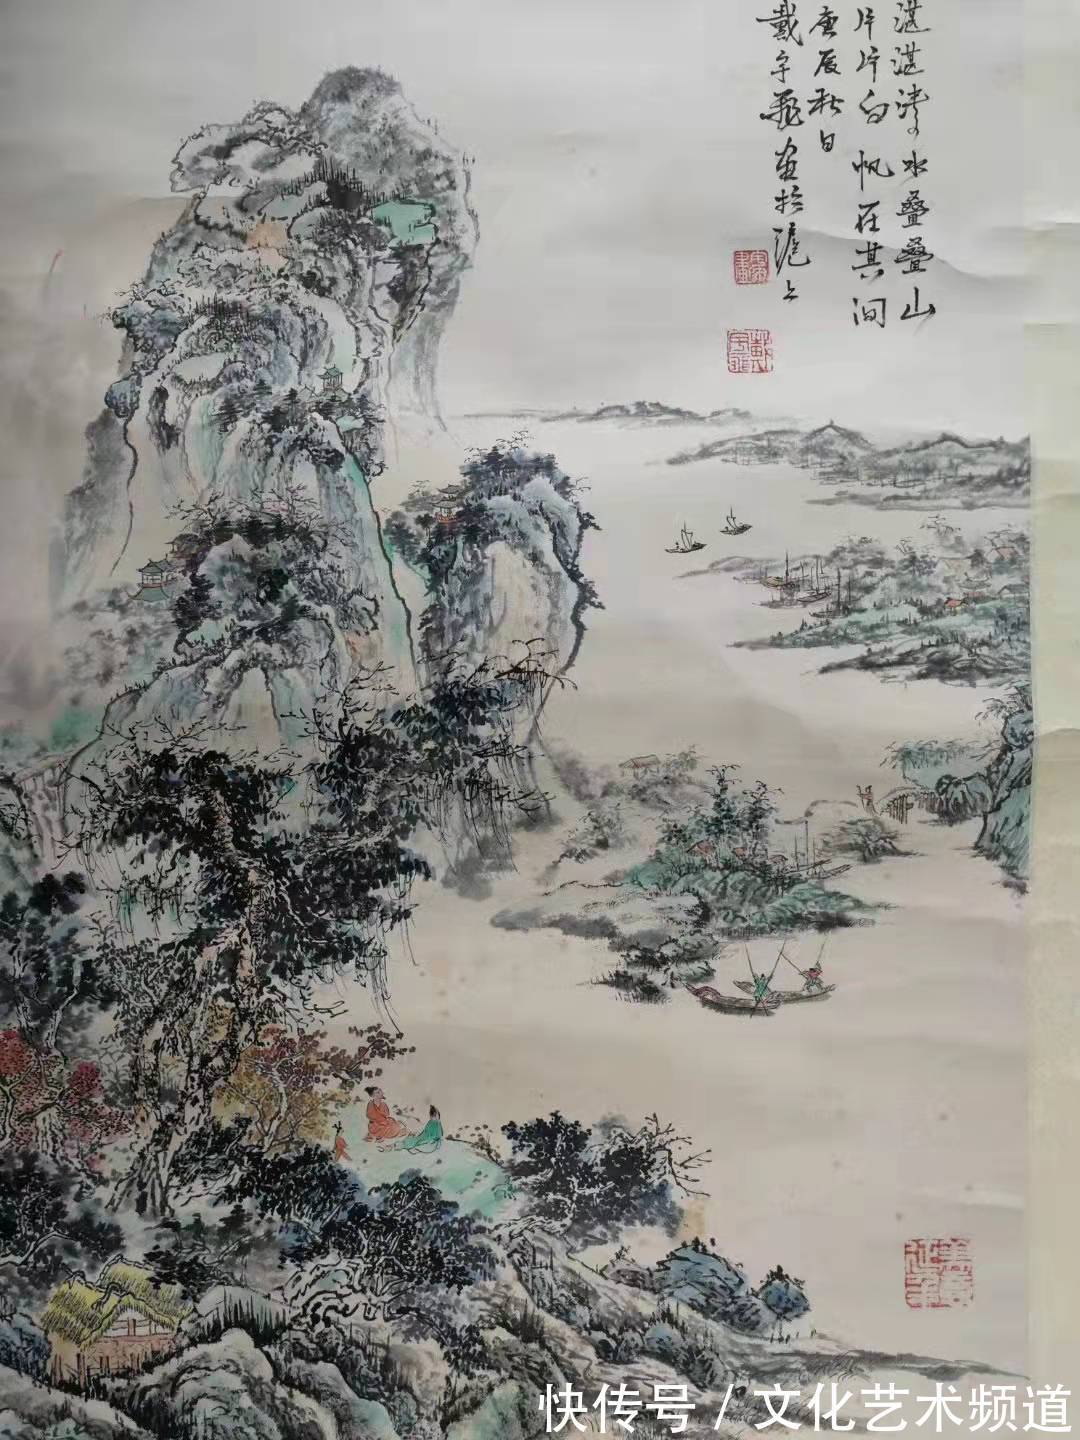 湛湛清水叠叠山
片片白帆在其间
庚辰秋日
戴宇飛画於滬上
快传号 / 文化艺术频道